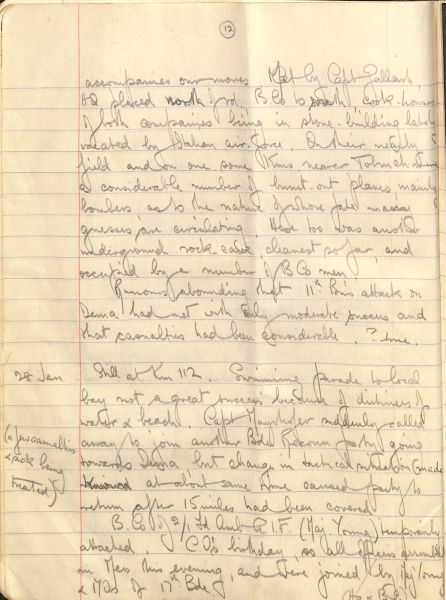 12
accompanies our moves. Met by Capt
HQ placed north of rd. B Co to south, cook-houses
of both companies being in stone-building lately
vacated by Italian air-force. On their nearby
field and on one some Kms nearer Tobruch there
a considerable number of burnt-out planes mainly
bombers, as to the nature of whose fate many
guesses are circulating. Here too was another
underground rock-cave, cleanest so far, and
occupied by a number of B Co men.
Rumours abounding that 11th Bn's attack on
Derna had met with only moderate success and
that casualties had been considerable. ? true.
28 Jan
Still at Km 112. Swimming parade to local
bay not a great success because of dirtiness of
water & beach. Capt suddenly called
away to join another Bde recon party going
towards Derna but change in tactical situation made
known at about same time caused party to
return after 15 miles had been covered
(a few casualties
& sick being
treated)
B. Co of 2/1 Fd Amb AIF. (Maj Young) temporarily
attached. CO's birthday, so all officers assembled
in Mess this evening, and were joined by Maj
& MOs of 17th Bde